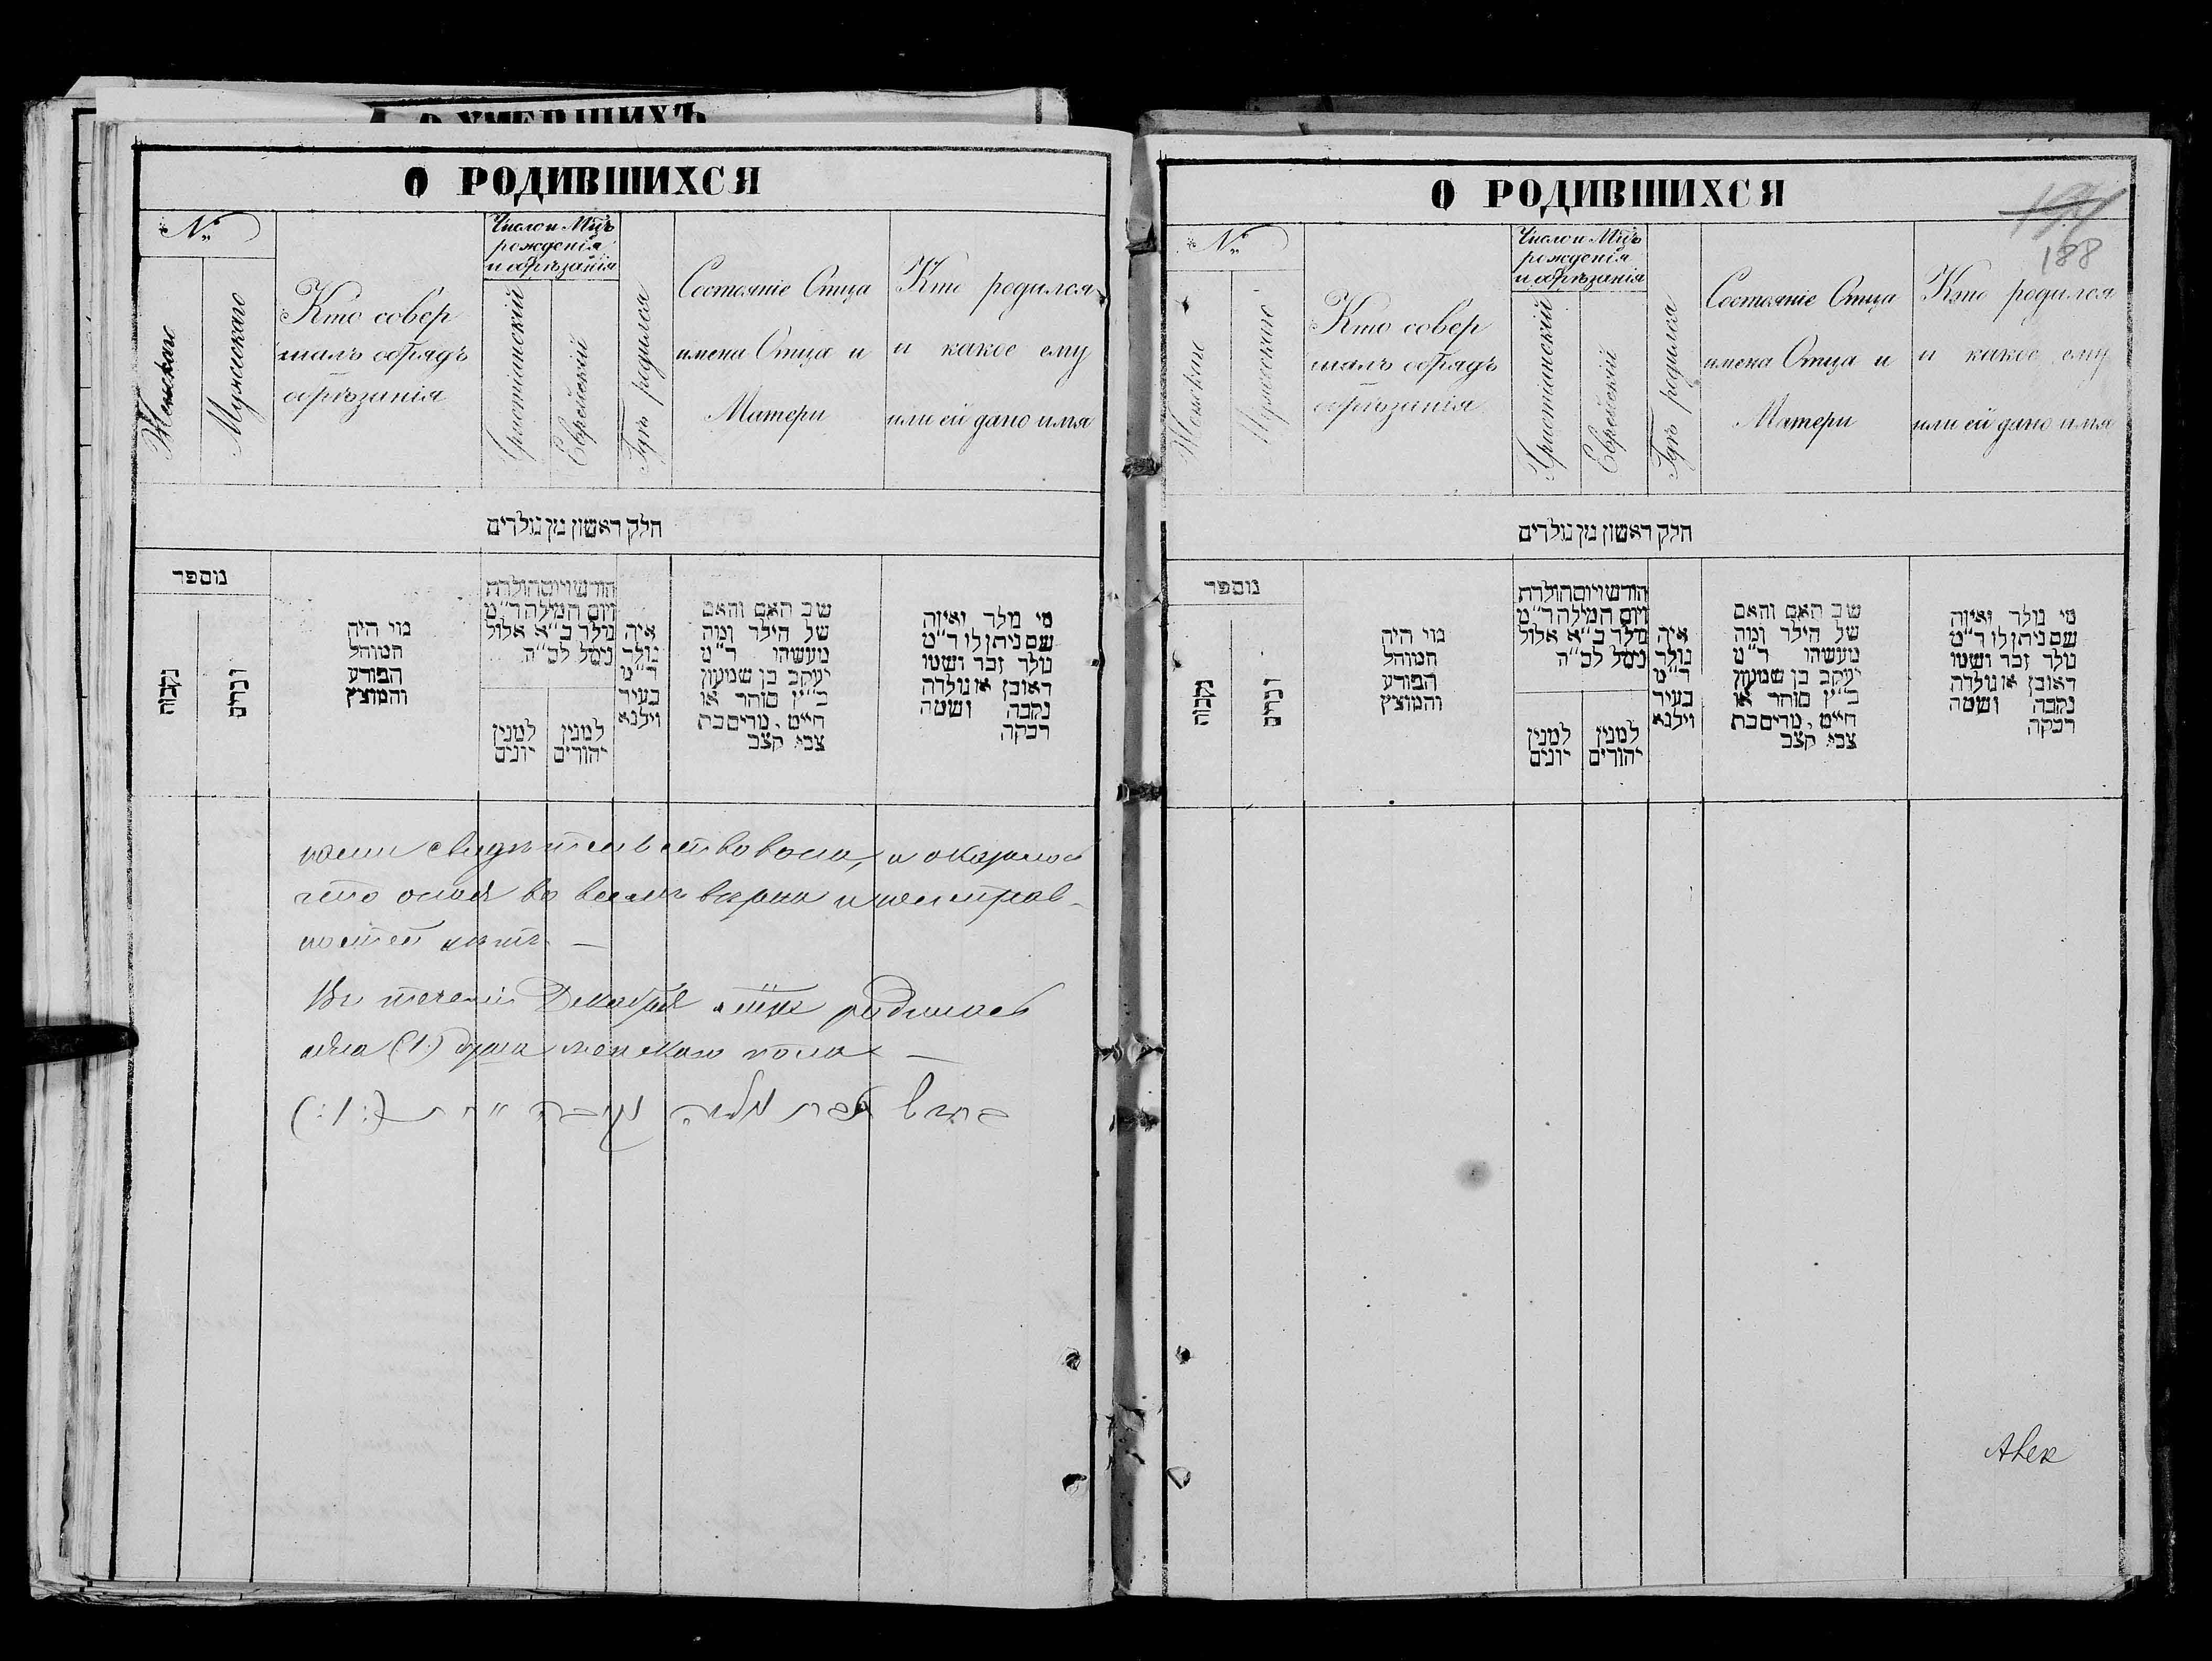 О УМЕРШИХЪ
О РОДИВШИХСЯ
№
Женскаго
Мужескаго
Кто совер
шалъ обрядъ
обрѣзанія
Число и Мцъ
рожденія
и обрѣзанія
Христіанскій
Еврейскій
Гдѣ родился
Состояніе Отца
имена Отца и
Матери
Кто родился
и какое ему
или ей дано имя
חלק ראשון מן נולדים
מספר
נקבות
זכרים
מי היה
המוהל
הפורע
והמוצץ
חודש ויום הולדת
ויום המילה ד״מ
נולד ב״א אלול
נימל לכ״ה
למנין
יונים
למנין
יהודים
איה
נולד
ד״מ
בעיר
וילנא
שב האם והאם
של הילד ומה
מעשהו ד״מ
יעקב בן שמעון
כ״ץ סוחר או
חייט, מרים בת
צבי קצב
מי נולד ואיזה
שם ניתן לו ד״מ
נולד זכר ושמו
ראובן או נולדה
נקבה ושמה
רבקה
нами свидѣтельствована, и оказалось
что оная во всемъ вѣрна и неисправ-
ностей нѣтъ. —
Въ теченіи Декабря родилась
одна (1) душа женскаго пола —
(:1:)
О РОДИВШИХСЯ
188
№
Женскаго
Мужескаго
Кто совер
шалъ обрядъ
обрѣзанія
Число и Мцъ
рожденія
и обрѣзанія
Христіанскій
Еврейскій
Гдѣ родился
Состояніе Отца
имена Отца и
Матери
Кто родился
и какое ему
или ей дано имя
חלק ראשון מן נולדים
מספר
נקבות
זכרים
מי היה
המוהל
הפורע
והמוצץ
חודש ויום הולדת
ויום המילה ד״מ
נולד ב״א אלול
נימל לכ״ה
למנין
יונים
למנין
יהודים
איה
נולד
ד״מ
בעיר
וילנא
שב האם והאם
של הילד ומה
מעשהו ד״מ
יעקב בן שמעון
כ״ץ סוחר או
חייט, מרים בת
צבי קצב
מי נולד ואיזה
שם ניתן לו ד״מ
נולד זכר ושמו
ראובן או נולדה
נקבה ושמה
רבקה